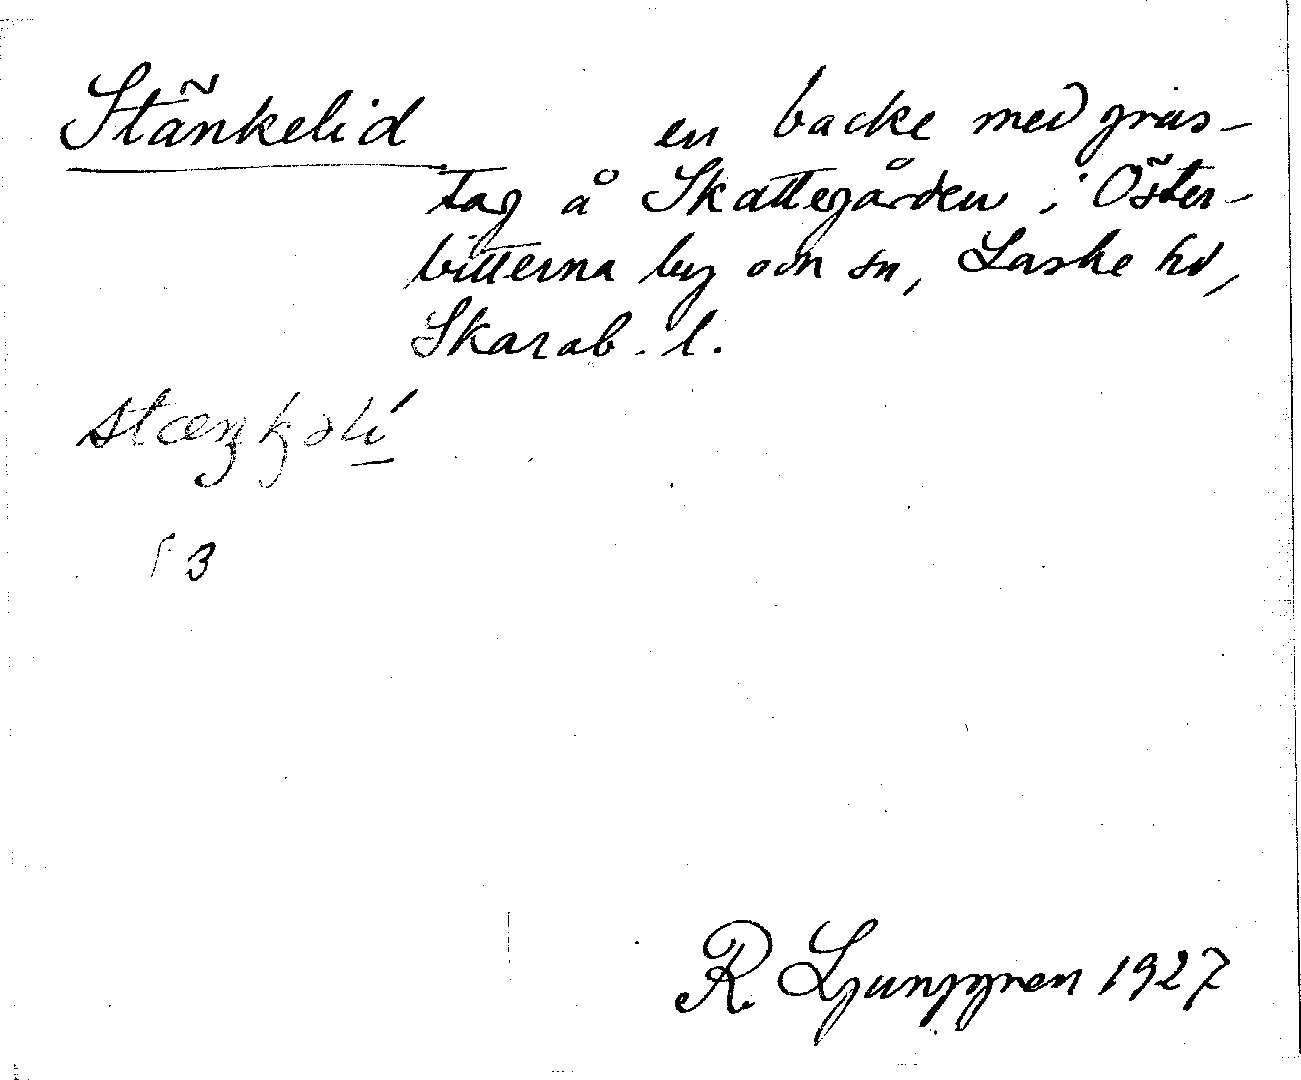 Stänkelid en backe med grus-
tag å Skattegården i Öster-
bitterna by och sn, Laske hd,
Skarab. l.
3
R. Ljunggren 1927